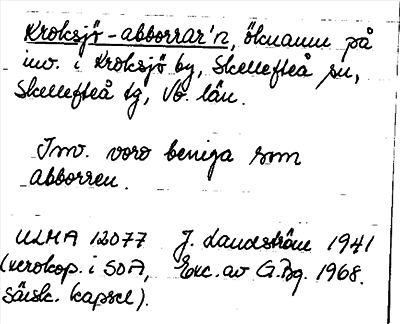 Kroksjö-abborrar'n, öknamn på
inv. i Kroksjö by, Skellefteå sn,
Skellefteå tg, Vb. län.
Inv. voro beniga som
abborren.
ULMA 12077 J. Lundström 1941
(xerokop. i SOA, Exc. av G.Bg. 1968.
särsk. kapsel).